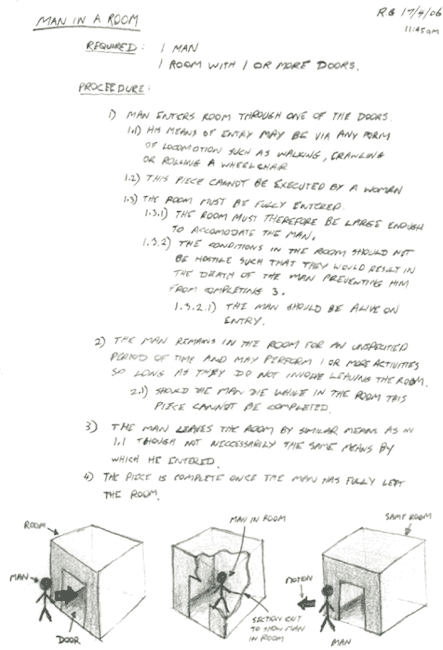 MAN IN A ROOM
RG 17/4/06
11:45am
REQUIRED: 1 MAN
1 ROOM WITH 1 OR MORE DOORS.
PROCEEDURE:
1) MAN ENTERS ROOM THROUGH ONE OF THE DOORS.
1.1) HIS MEANS OF ENTRY MAY BE VIA ANY FORM
OF LOCOMOTION SUCH AS WALKING, CRAWLING
OR ROLLING A WHEELCHAIR
1.2) THIS PIECE CANNOT BE EXECUTED BY A WOMAN
1.3) THE ROOM MUST BE FULLY ENTERED.
1.3.1) THE ROOM MUST THEREFORE BE LARGE ENOUGH
TO ACCOMODATE THE MAN.
1.3.2) THE CONDITIONS IN THE ROOM SHOULD NOT
BE HOSTILE SUCH THAT THEY WOULD RESULT IN
THE DEATH OF THE MAN PREVENTING HIM
FROM COMPLETING 3.
1.3.2.1) THE MAN SHOULD BE ALIVE ON
ENTRY.
2) THE MAN REMAINS IN THE ROOM FOR AN UNSPECIFIED
PERIOD OF TIME AND MAY PERFORM 1 OR MORE ACTIVITIES
SO LONG AS THEY DO NOT INVOLVE LEAVING THE ROOM.
2.1) SHOULD THE MAN DIE WHILE IN THE ROOM THIS
PIECE CANNOT BE COMPLETED.
3) THE MAN LEAVES THE ROOM BY SIMILAR MEANS AS IN
1.1 THOUGH NOT NECCESSARILY THE SAME MEANS BY
WHICH HE ENTERED.
4) THE PIECE IS COMPLETE ONCE THE MAN HAS FULLY LEFT
THE ROOM.
ROOM
MAN
DOOR
MAN IN ROOM
SECTION CUT
TO SHOW MAN
IN ROOM
SAME ROOM
MOTION
MAN